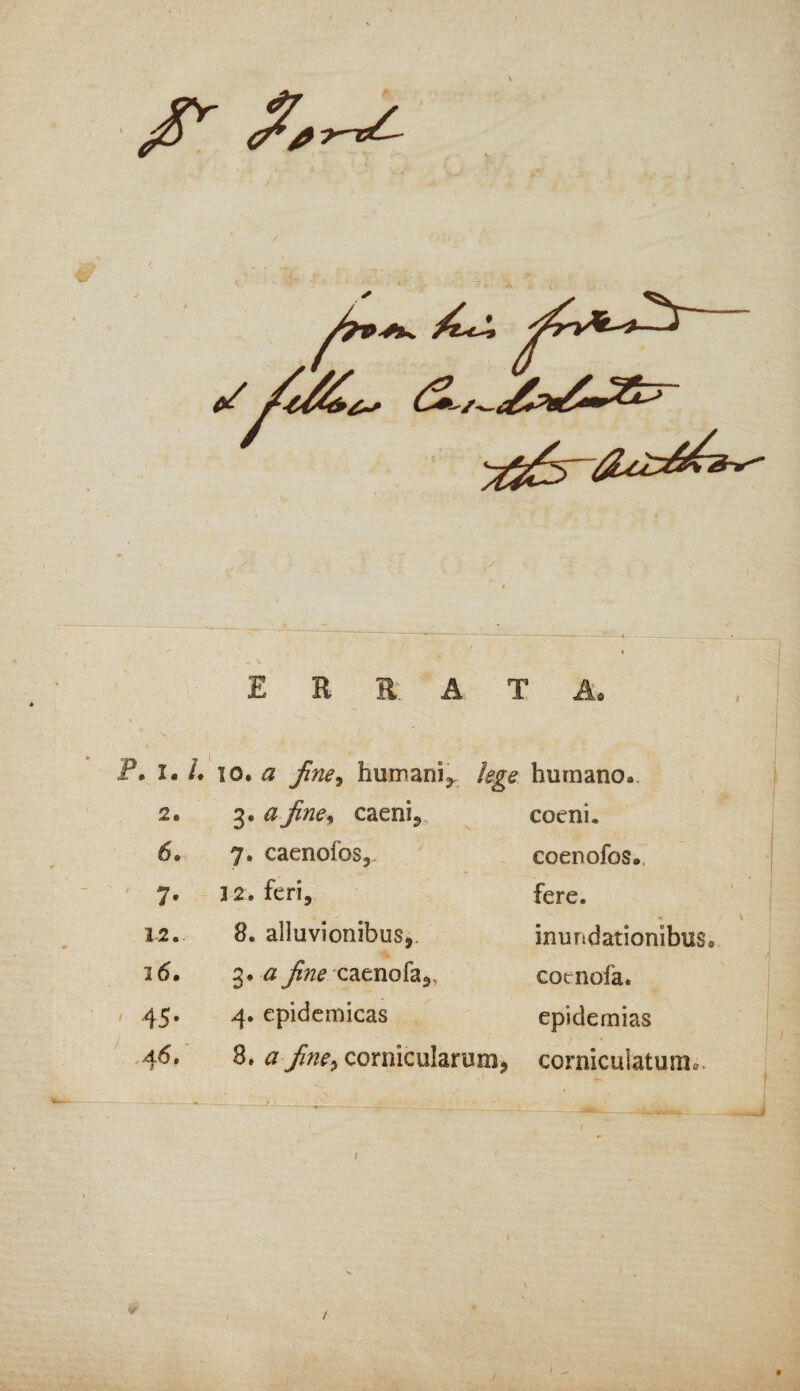 Dr Ford
from his friend
& fellow Candidate
the Author
E R R A T A.
P. 1. l. 10. a fine, humani, lege humano.
2. 3. a fine, caeni, coeni.
6. 7. caenoſos, coenoſos.
7. 12. feri, fere.
12. 8. alluvionibus, inundationibus.
16. 3. a fine caenoſa, coenoſa.
45. 4. epidemicas epidemias
46. 8. a fine, cornicularum, corniculatum.